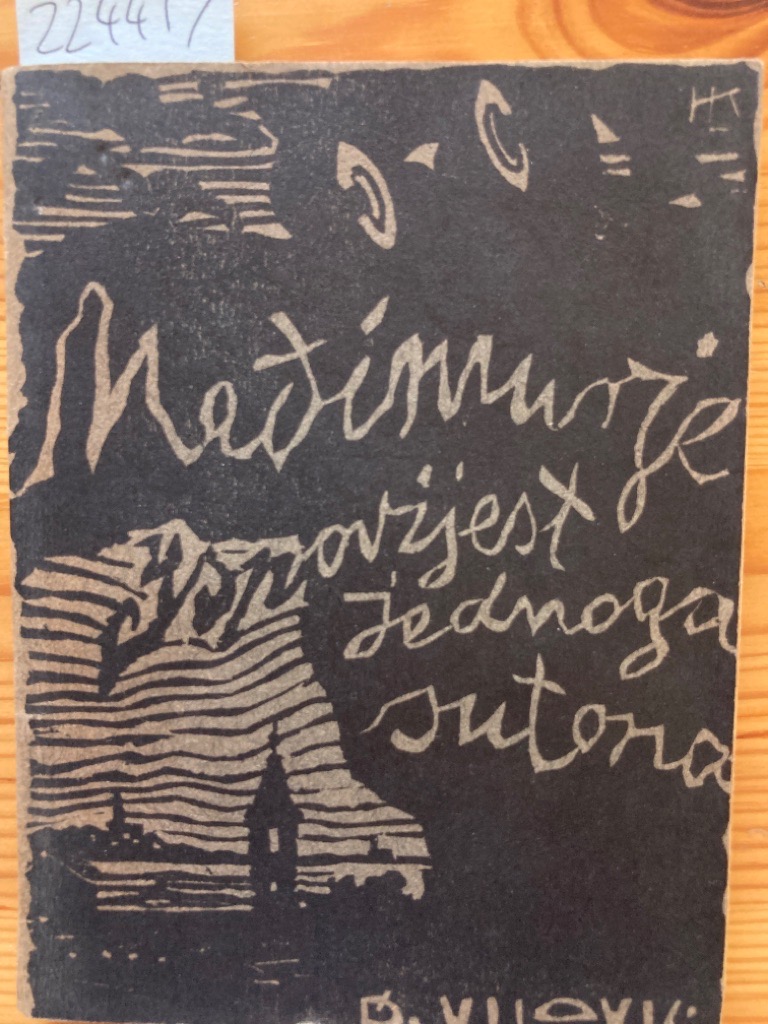 224417
HK
Međimurje
Pripovijest
jednoga
sutona